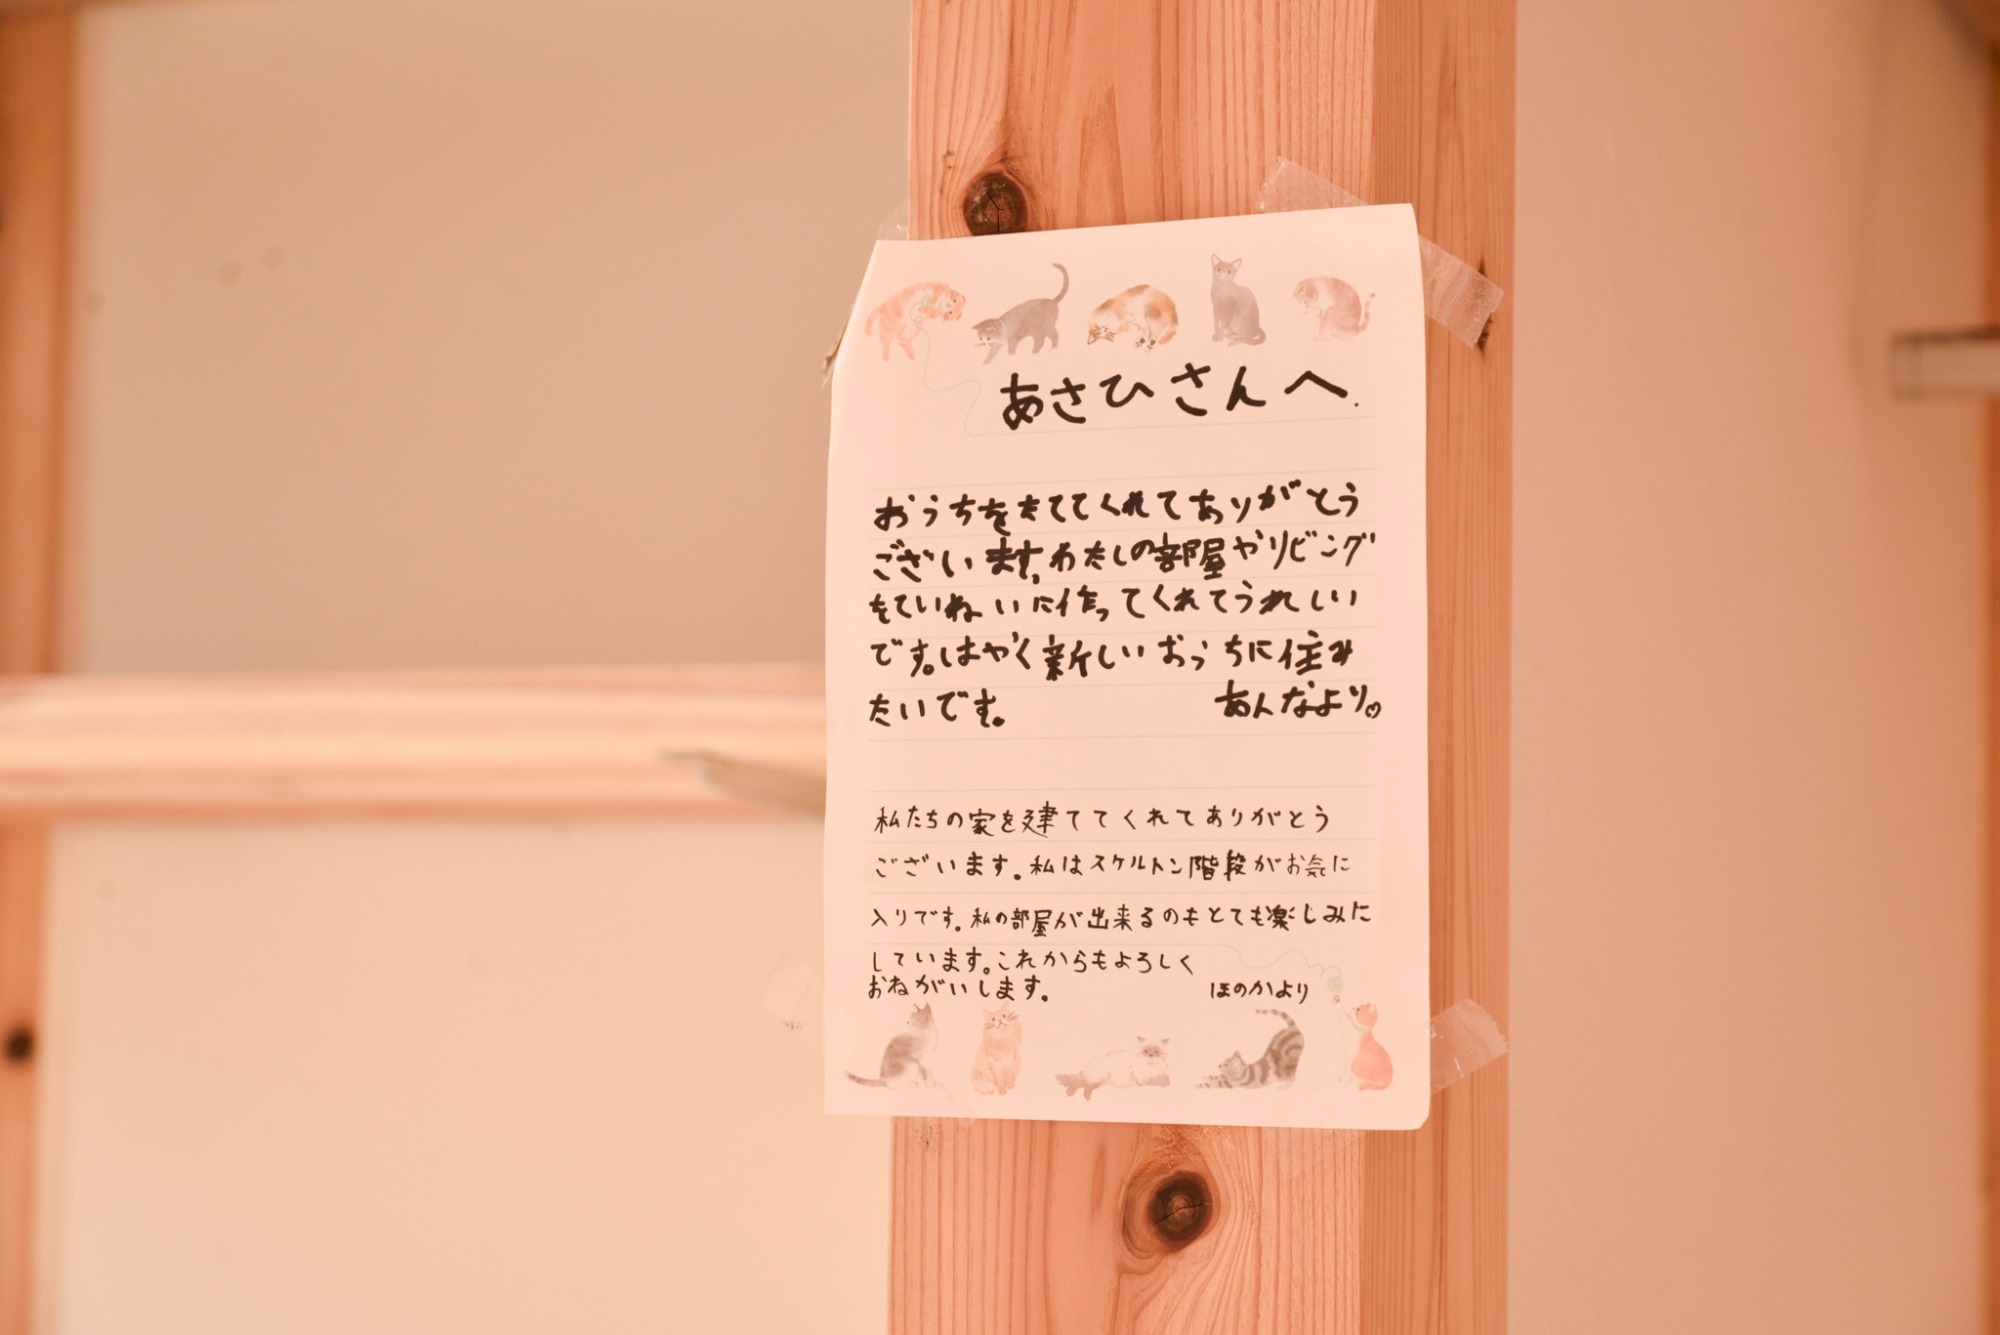 あさひさんへ.
おうちをたててくれてありがとう
ございます。わたしの部屋やリビング
をていねいに作ってくれてうれしい
です。はやく新しいおうちに住み
たいです。 あんなより♡
私たちの家を建ててくれてありがとう
ございます。私はスケルトン階段がお気に
入りです。私の部屋が出来るのもとても楽しみに
しています。これからもよろしく
おねがいします。 ほのかより